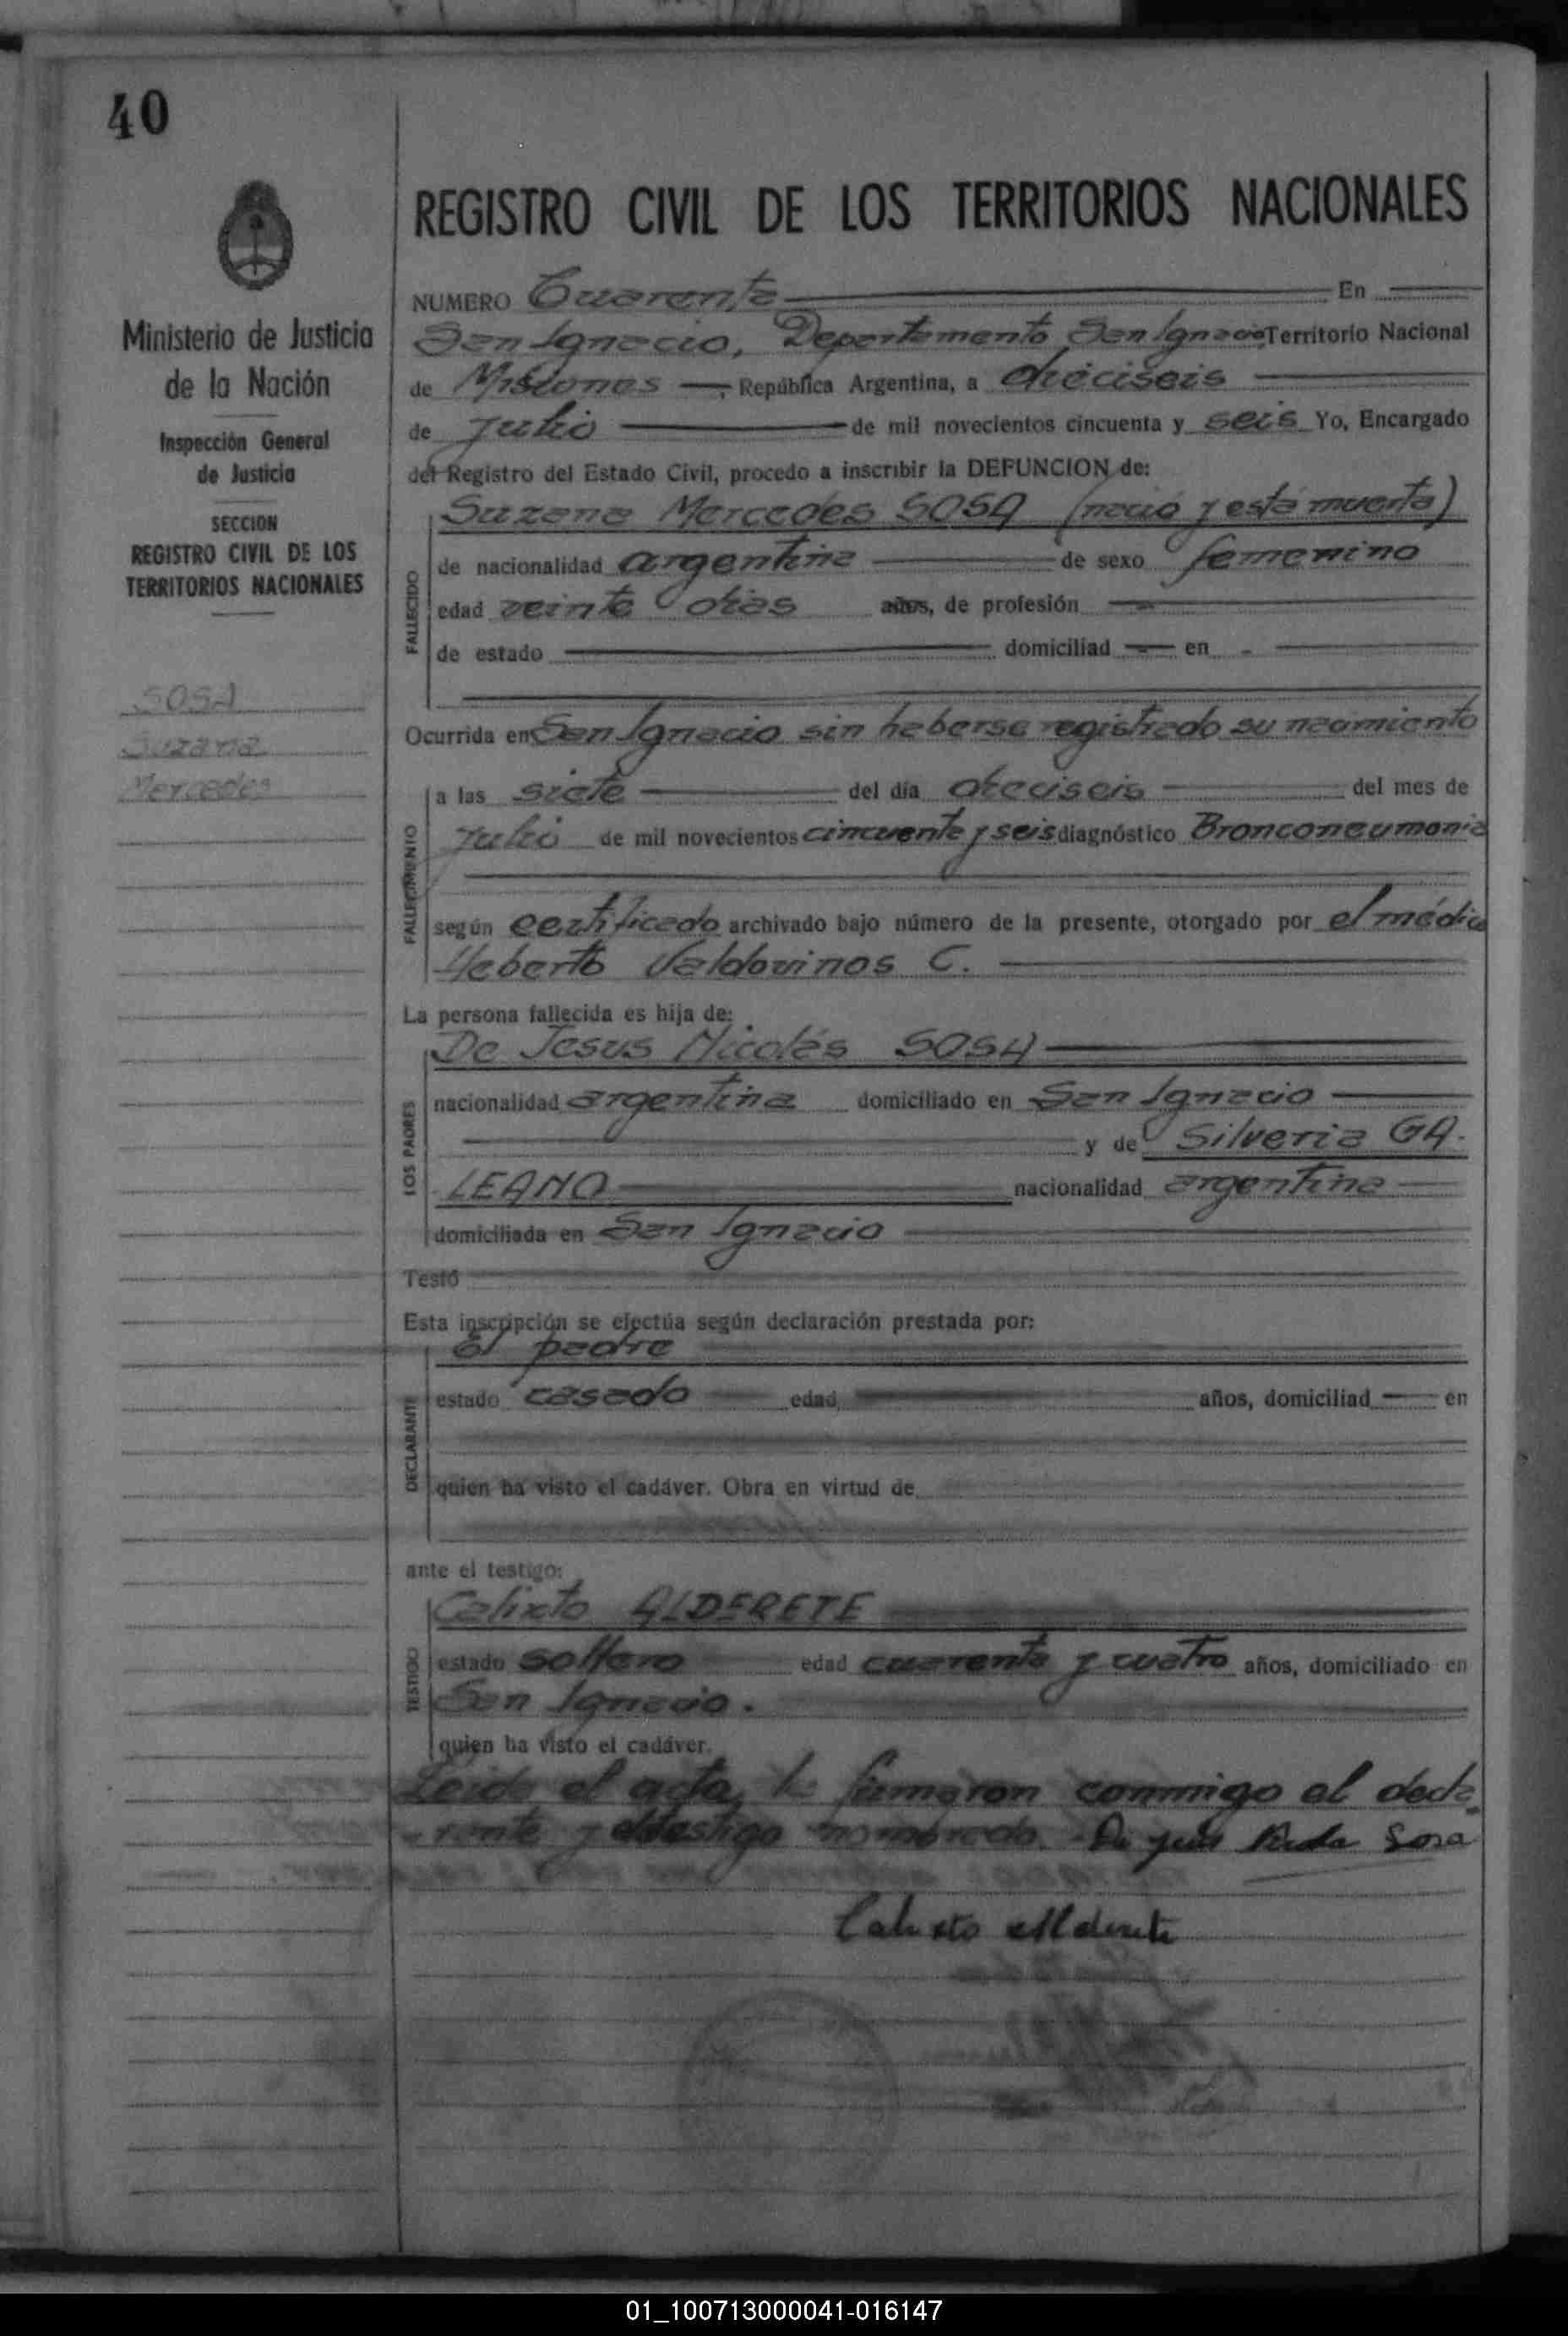 40
REGISTRO CIVIL DE LOS TERRITORIOS NACIONALES
Ministerio de Justicia
de la Nación
Inspección General
de Justicia
SECCION
REGISTRO CIVIL DE LOS
TERRITORIOS NACIONALES
SOSA
Suzana
Mercedes
NUMERO Cuarenta En
San Ignacio, Departamento San Ignacio Territorio Nacional
de Misiones, República Argentina, a dieciseis
de Julio de mil novecientos cincuenta y seis Yo, Encargado
del Registro del Estado Civil, procedo a inscribir la DEFUNCION de:
Suzana Mercedes SOSA (nació y está muerta)
FALLECIDO
de nacionalidad argentina de sexo femenino
edad veinte dias años, de profesión
de estado domiciliad en
Ocurrida en San Ignacio sin haberse registrado su nacimiento
FALLECIMIENTO
a las siete del día dieciseis del mes de
Julio de mil novecientos cincuenta y seis diagnóstico Bronconeumonia
según certificado archivado bajo número de la presente, otorgado por el médico
Heberto Valdovinos C.
La persona fallecida es hija de:
De Jesus Nicolás SOSA
LOS PADRES
nacionalidad argentina domiciliado en San Ignacio
y de Silveria GA-
LEANO nacionalidad argentina
domiciliada en San Ignacio
Testó
Esta inscripción se efectúa según declaración prestada por:
El padre
DECLARANTE
estado casado edad años, domiciliad en
quien ha visto el cadáver. Obra en virtud de
ante el testigo:
Calixto ALDERETE
TESTIGO
estado soltero edad cuarenta y cuatro años, domiciliado en
San Ignacio.
quien ha visto el cadáver.
Leida el acta, la firmaron conmigo el decla-
rante y el testigo nombrado. Sosa
Calixto Alderete
01_100713000041-016147